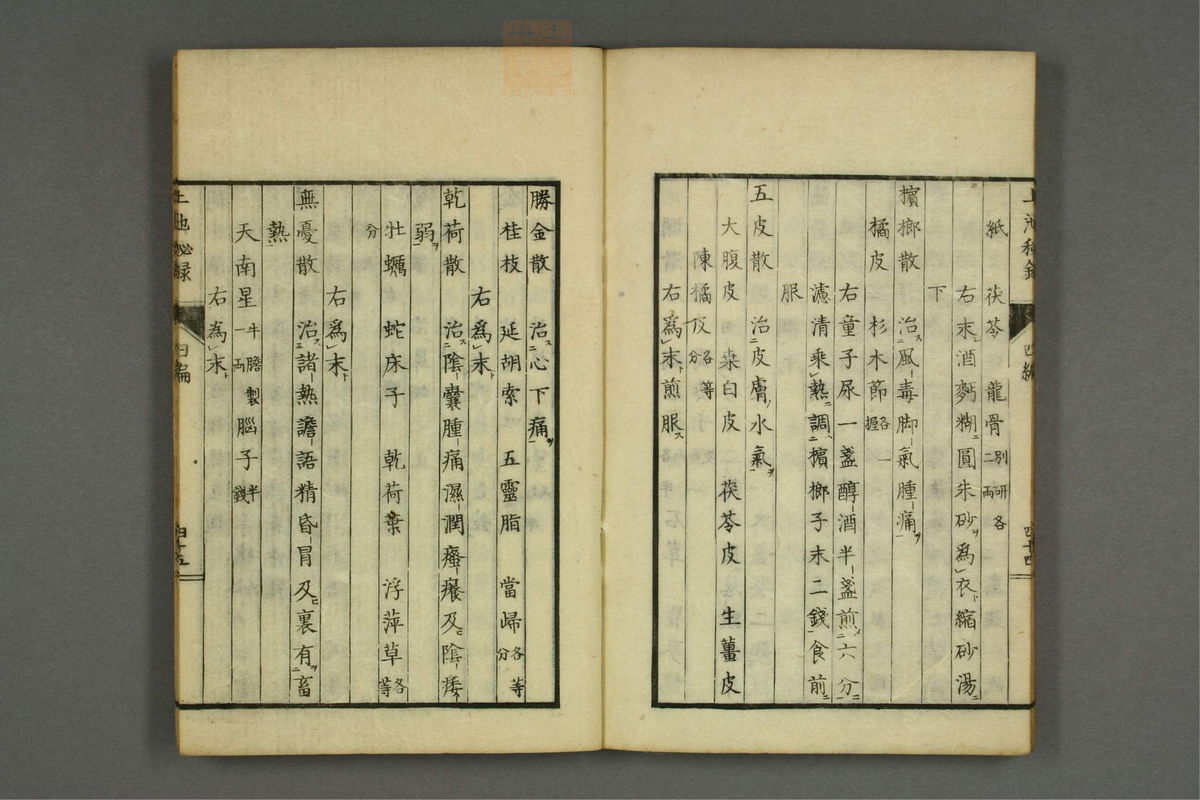 紙　茯苓　龍骨別研各二両
右末酒麪糊圓朱砂為衣縮砂湯
下
檳榔散　治風毒脚氣腫痛
橘皮　杉木節各一握
右童子尿一盞醇酒半盞煎六分
濾清乘熱調檳榔子末二錢食前
服
五皮散　治皮膚水氣
大腹皮　桒白皮　茯苓皮　生薑皮
陳橘皮各等分
右為末煎服
上池秘録　四編　四十四
勝金散　治心下痛
桂枝　延胡索　五靈脂　當歸各等分
右為末
乾荷散　治陰嚢腫痛濕潤瘙癢及陰痿
弱
牡蠣　蛇床子　乾荷葉　浮萍草各等
分
右為末
無憂散　治諸熱譫語精昏冒及裏有畜
熱
天南星牛膽製一両　腦子半錢
右為末
上池秘録　四編　四十五